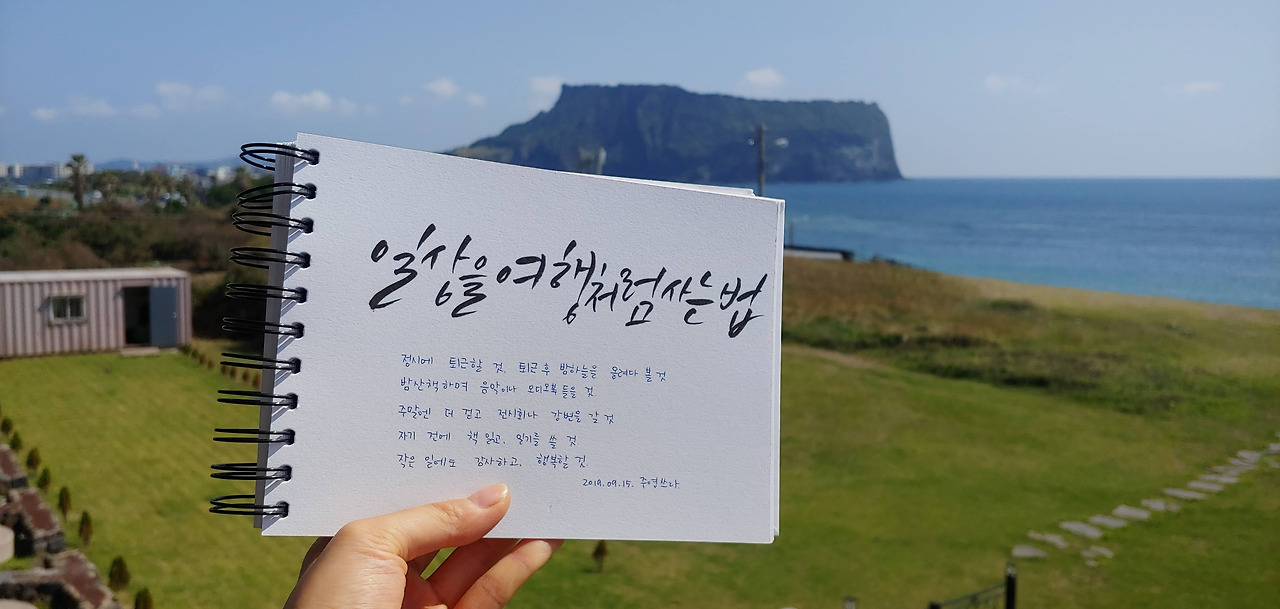 일상을 여행처럼 사는 법
정시에 퇴근할 것. 퇴근 후 밤하늘을 올려다 볼 것
밤산책하며 음악이나 오디오북 들을 것
주말엔 더 걷고 전시회나 강변을 갈 것
자기 전에 책 읽고, 일기를 쓸 것
작은 일에도 감사하고, 행복할 것.
2019.09.15. 주영쓰다